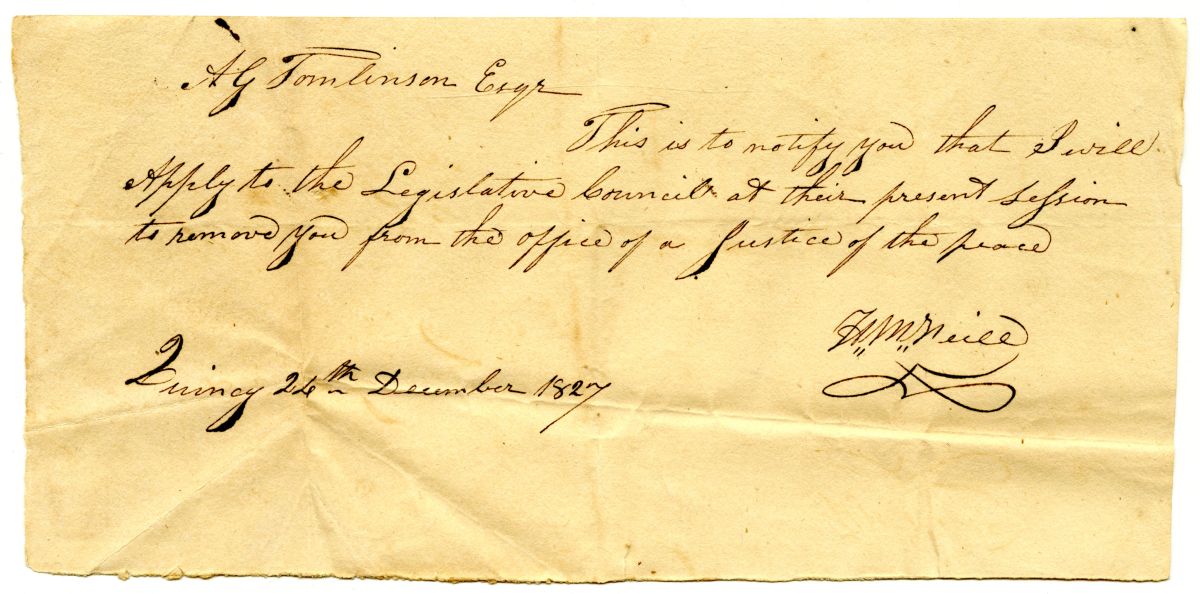 A G Tomlinson Esqr
This is to notify you that I will
Apply to the Legislative Council at their present Session
to remove you from the office of a Justice of the peace
H. McNeill
Quincy 24th December 1827